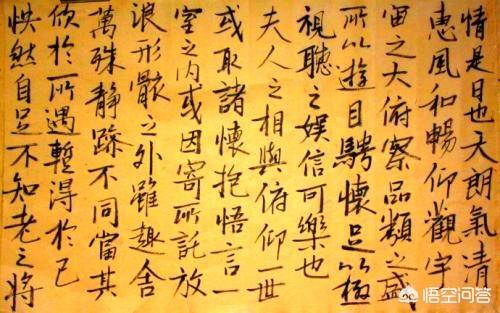 情是日也天朗氣清
惠風和暢仰觀宇
宙之大俯察品類之盛
所以遊目騁懷足以極
視聽之娛信可樂也
夫人之相與俯仰一世
或取諸懷抱悟言一
室之內或因寄所託放
浪形骸之外雖趣舍
萬殊靜躁不同當其
欣於所遇暫得於己
快然自足不知老之將
悟空问答